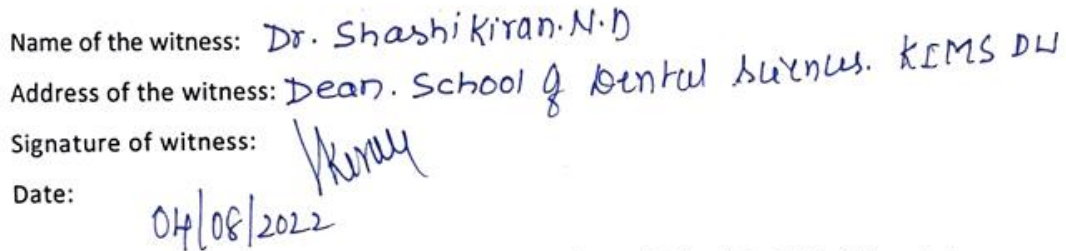 Name of the witness: Dr. Shashikiran.N.D
Address of the witness: Dean. School of Dental Sciences. KIMS DU
Signature of witness: Kiran
Date:
04/08/2022